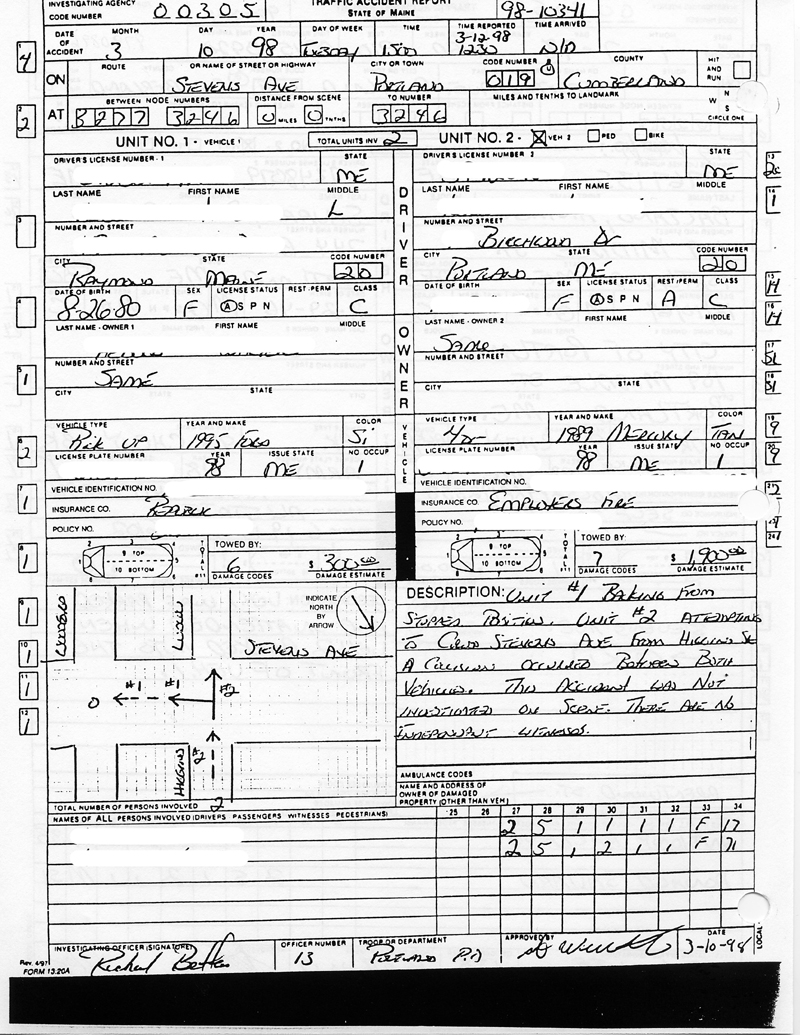 INVESTIGATING AGENCY
CODE NUMBER 00305
TRAFFIC ACCIDENT REPORT
STATE OF MAINE
98-10341
DATE OF ACCIDENT
MONTH DAY YEAR DAY OF WEEK TIME TIME REPORTED TIME ARRIVED
3 10 98 1500 3-12-98 1230
ROUTE OR NAME OF STREET OR HIGHWAY CITY OR TOWN CODE NUMBER COUNTY HIT AND RUN
ON STEVENS AVE PORTLAND 019 CUMBERLAND
BETWEEN NODE NUMBERS DISTANCE FROM SCENE TO NUMBER MILES AND TENTHS TO LANDMARK N W S CIRCLE ONE
AT 3277 3246 0 MILES 0 TNTHS 3246
UNIT NO. 1 - VEHICLE 1 TOTAL UNITS INV 2 UNIT NO. 2 - X VEH 2 PED BIKE
DRIVER'S LICENSE NUMBER - 1 STATE ME
DRIVER'S LICENSE NUMBER - 2 STATE ME
LAST NAME FIRST NAME MIDDLE L
LAST NAME FIRST NAME MIDDLE
DRIVER
NUMBER AND STREET
NUMBER AND STREET BIRCHWOOD DR
CITY STATE CODE NUMBER
RAYMOND MAINE 20
CITY STATE CODE NUMBER
PORTLAND ME 20
DATE OF BIRTH SEX LICENSE STATUS REST/PERM CLASS
8-26-80 F A S P N C
DATE OF BIRTH SEX LICENSE STATUS REST/PERM CLASS
F A S P N A C
LAST NAME - OWNER 1 FIRST NAME MIDDLE
LAST NAME - OWNER 2 FIRST NAME MIDDLE
SAME
OWNER
NUMBER AND STREET
SAME
NUMBER AND STREET
CITY STATE
CITY STATE
VEHICLE
VEHICLE TYPE YEAR AND MAKE COLOR
PICK UP 1995 FORD Si
VEHICLE TYPE YEAR AND MAKE COLOR
4dr 1989 MERCURY TAN
LICENSE PLATE NUMBER YEAR ISSUE STATE NO OCCUP
98 ME 1
LICENSE PLATE NUMBER YEAR ISSUE STATE NO OCCUP
98 ME 1
VEHICLE IDENTIFICATION NO.
VEHICLE IDENTIFICATION NO.
INSURANCE CO.
INSURANCE CO. EMPLOYERS FIRE
POLICY NO.
POLICY NO.
9 TOP
10 BOTTOM
TOTAL #11
TOWED BY:
6 $ 300.00
DAMAGE CODES DAMAGE ESTIMATE
9 TOP
10 BOTTOM
TOTAL #11
TOWED BY:
7 $ 1,900.00
DAMAGE CODES DAMAGE ESTIMATE
INDICATE NORTH BY ARROW
STEVENS AVE
#1 #1 #2
#2
HIGGINS
DESCRIPTION: UNIT #1 BAKING FROM
STOPPED POSITION. UNIT #2 ATTEMPTING
TO CROSS STEVENS AVE FROM HIGGINS ST
A COLLISION OCCURRED BETWEEN BOTH
VEHICLES. THIS ACCIDENT WAS NOT
INVESTIGATED ON SCENE. THERE ARE NO
INDEPENDENT WITNESSES.
AMBULANCE CODES
NAME AND ADDRESS OF
OWNER OF DAMAGED
PROPERTY (OTHER THAN VEH)
TOTAL NUMBER OF PERSONS INVOLVED 2
NAMES OF ALL PERSONS INVOLVED (DRIVERS PASSENGERS WITNESSES PEDESTRIANS) 25 26 27 28 29 30 31 32 33 34
2 5 1 1 1 1 F 17
2 5 1 2 1 1 F 71
INVESTIGATING OFFICER (SIGNATURE) OFFICER NUMBER TROOP OR DEPARTMENT APPROVED BY DATE
Richard 13 PORTLAND P.D 3-10-98
Rev. 4/97
FORM 13:20A
LOCAL